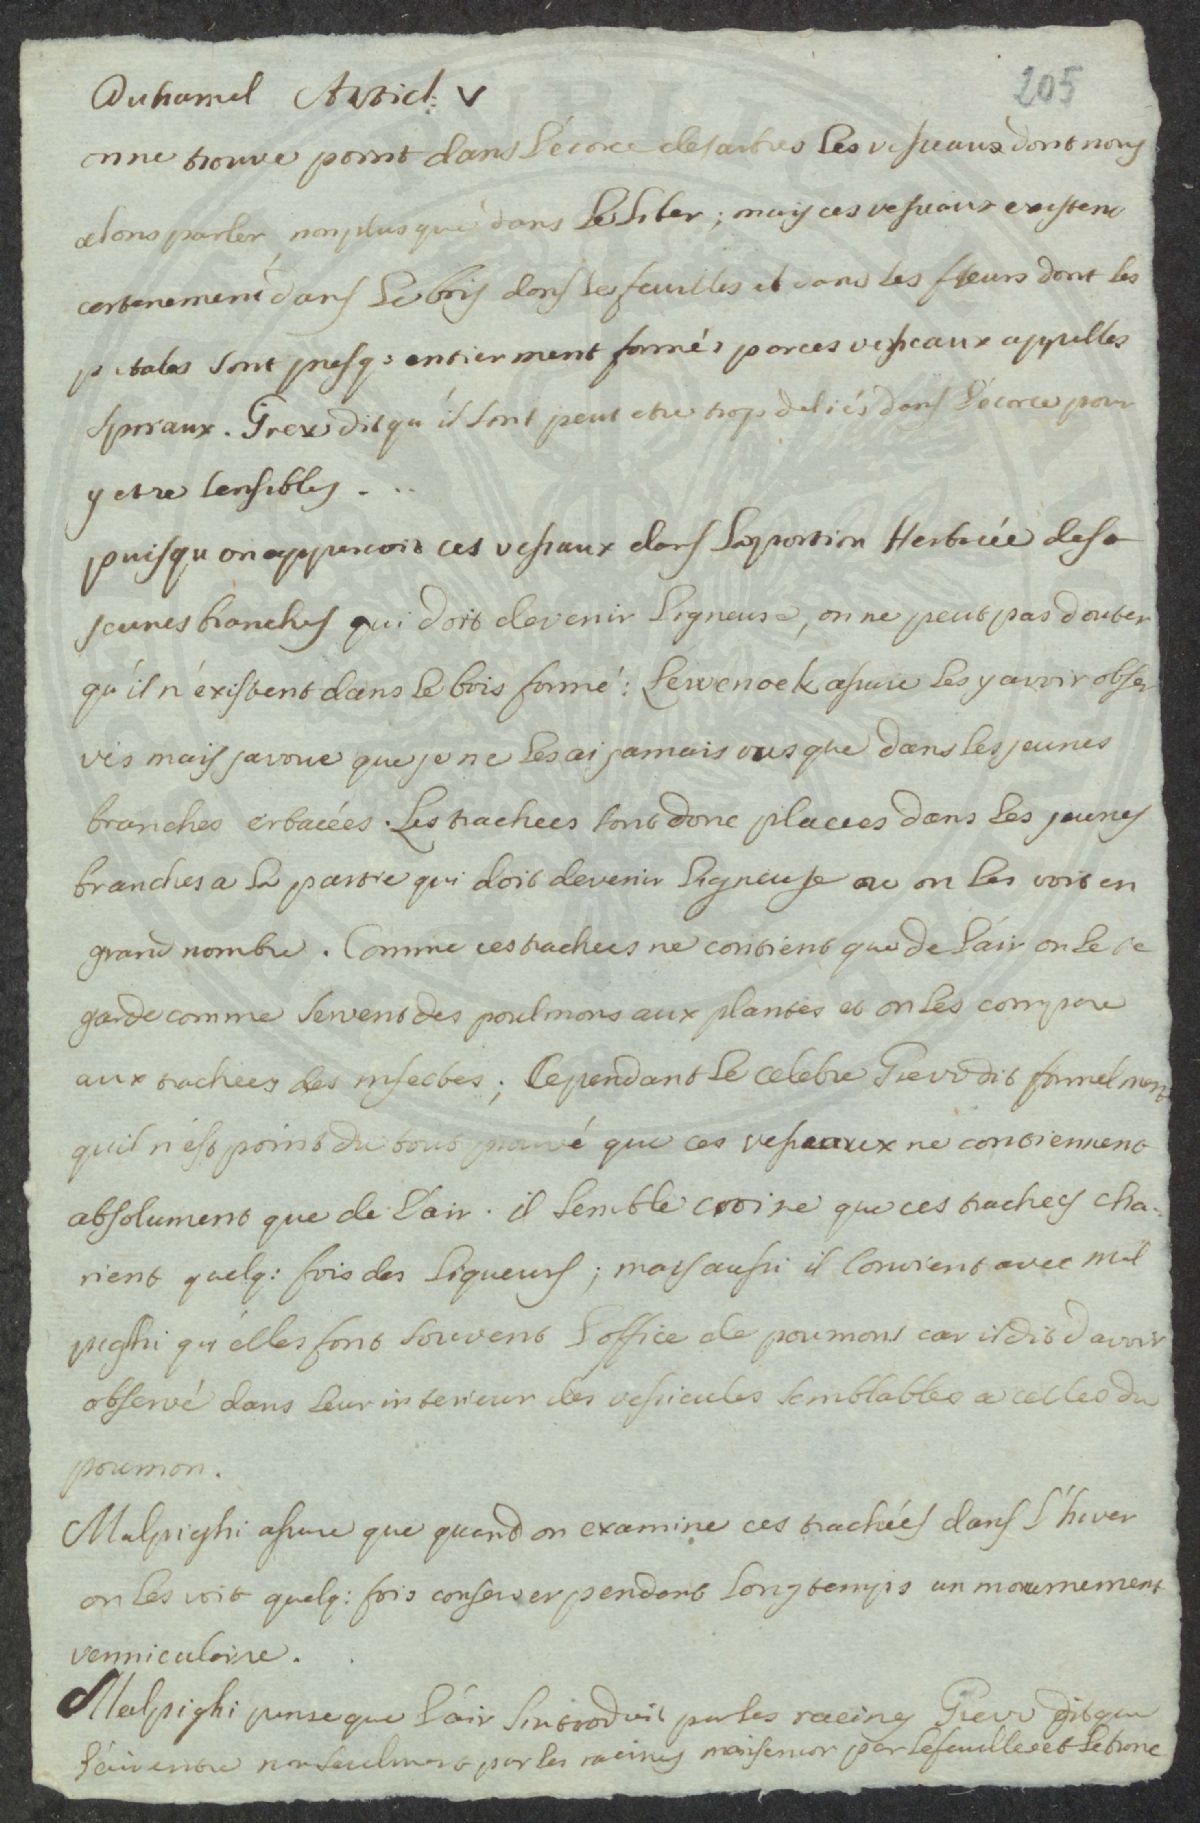 Duhamel Articl: V
205
on ne trouve point dans l'écorce des arbres les vesseaux dont nous
alons parler, non plus que dans le liber; mais ces vesseaux existent
certenement dans le bois dans les feuilles et dans les fleurs dont les
petales sont presq: entierment formés par ces vesseaux appellés
spiraux. Grew dit qu'il sont peut etre trop deliés dans l'écorce pour
y etre sensibles. ..
puisqu on apperçoit ces vessaux dans la portion Herbacée des
jeunes branches qui doit devenir ligneuse, on ne peut pas douter
qu'il n'éxistent dans le bois formé: Lewenoek assure les y avoir obser
vés mais javoue que je ne les ai jamais vus que dans les jeunes
branches erbacées. Les trachees sont donc placees dans les jeunes
branches a la partie qui doit devenir ligneuse ou on les voit en
grand nombre. Comme ces trachees ne contient que de l'air on le re
garde comme servent des poulmons aux plantes et on les compare
aux trachees des insectes; Cependant le celebre Grew dit formelment
quil n'est point du tout prouvé que ces vesseaux ne contiennent
absolument que de l'air. il semble croire que ces trachees cha-
rient quelq: fois des liqueurs; mais aussi il convient avec Mal
pighi qu'elles font souvent l'office de poumons car il dit d avoir
observé dans leur interieur des vesicules semblables a celles du
poumon.
Malpighi assure que quand on examine ces trachées dans l'hiver
on les voit quelq: fois conserver pendant longtemps un mouvement
vermiculaire.
Malpighi pense que l'air sintroduit par les racines Grew dit que
l'air entre non seulment par les racines mais encor par les feuilles et le tronc